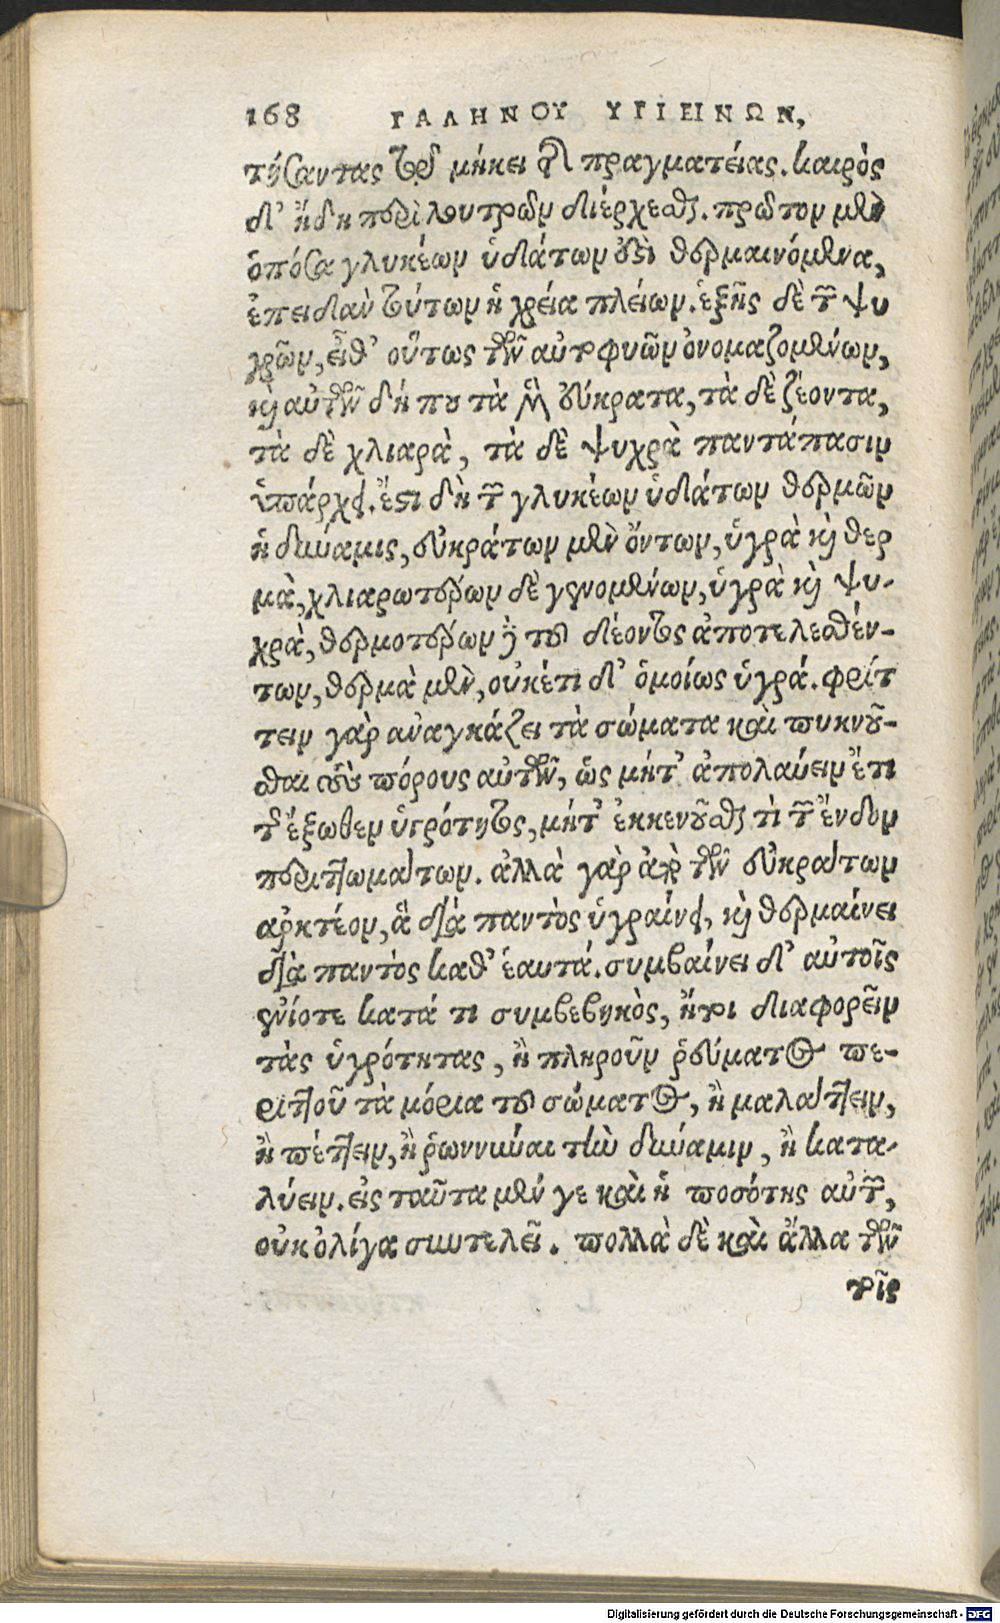 168 ΓΑΛΗΝΟΥ ΥΓΙΕΙΝΩΝ,
τήσαντας τῷ μήκει τῆς πραγματείας. καιρὸς
δ' ἤδη περὶ λουτρῶν διέρχεσθαι. πρῶτον μὲν
ὁπόσα γλυκέων ὑδάτων ἐστὶ θερμαινόμενα,
ἐπειδὰν τούτων ἡ χρεία πλείων. ἑξῆς δὲ τῶν ψυ
χρῶν, εἶθ' οὕτως τῶν αὐτοφυῶν ὀνομαζομένων,
καὶ αὐτῶν δή που τὰ μὲν εὔκρατα, τὰ δὲ ζέοντα,
τὰ δὲ χλιαρὰ, τὰ δὲ ψυχρὰ παντάπασιν
ὑπάρχει. ἔστι δὴ τῶν γλυκέων ὑδάτων θερμῶν
ἡ δύναμις, εὐκράτων μὲν ὄντων, ὑγρὰ καὶ θερ
μὰ, χλιαρωτέρων δὲ γενομένων, ὑγρὰ καὶ ψυ-
χρὰ, θερμοτέρων δὲ τοῦ δέοντος ἀποτελεσθέν-
των, θερμὰ μὲν, οὐκέτι δ' ὁμοίως ὑγρά. φρίτ
τειν γὰρ ἀναγκάζει τὰ σώματα καὶ πυκνοῦ-
σθαι τοὺς πόρους αὐτῶν, ὡς μήτ' ἀπολαύειν ἔτι
τῆς ἔξωθεν ὑγρότητος, μήτ' ἐκκενοῦσθαι τὶ τῶν ἔνδον
περιττωμάτων. ἀλλὰ γὰρ ἀπὸ τῶν εὐκράτων
ἀρκτέον, ἃ διὰ παντὸς ὑγραίνει, καὶ θερμαίνει
διὰ παντὸς καθ' ἑαυτά. συμβαίνει δ' αὐτοῖς
ἐνίοτε κατά τι συμβεβηκὸς, ἤτοι διαφορεῖν
τὰς ὑγρότητας, ἢ πληροῦν ῥεύματος πε-
ριττοῦ τὰ μόρια τοῦ σώματος, ἢ μαλάττειν,
ἢ πέττειν, ἢ ῥωννύναι τὴν δύναμιν, ἢ κατα-
λύειν. εἰς ταῦτα μέν γε καὶ ἡ ποσότης αὐτῶν,
οὐκ ὀλίγα συντελεῖ. πολλὰ δὲ καὶ ἄλλα τῶν
τοῖς
Digitalisierung gefördert durch die Deutsche Forschungsgemeinschaft - DFG